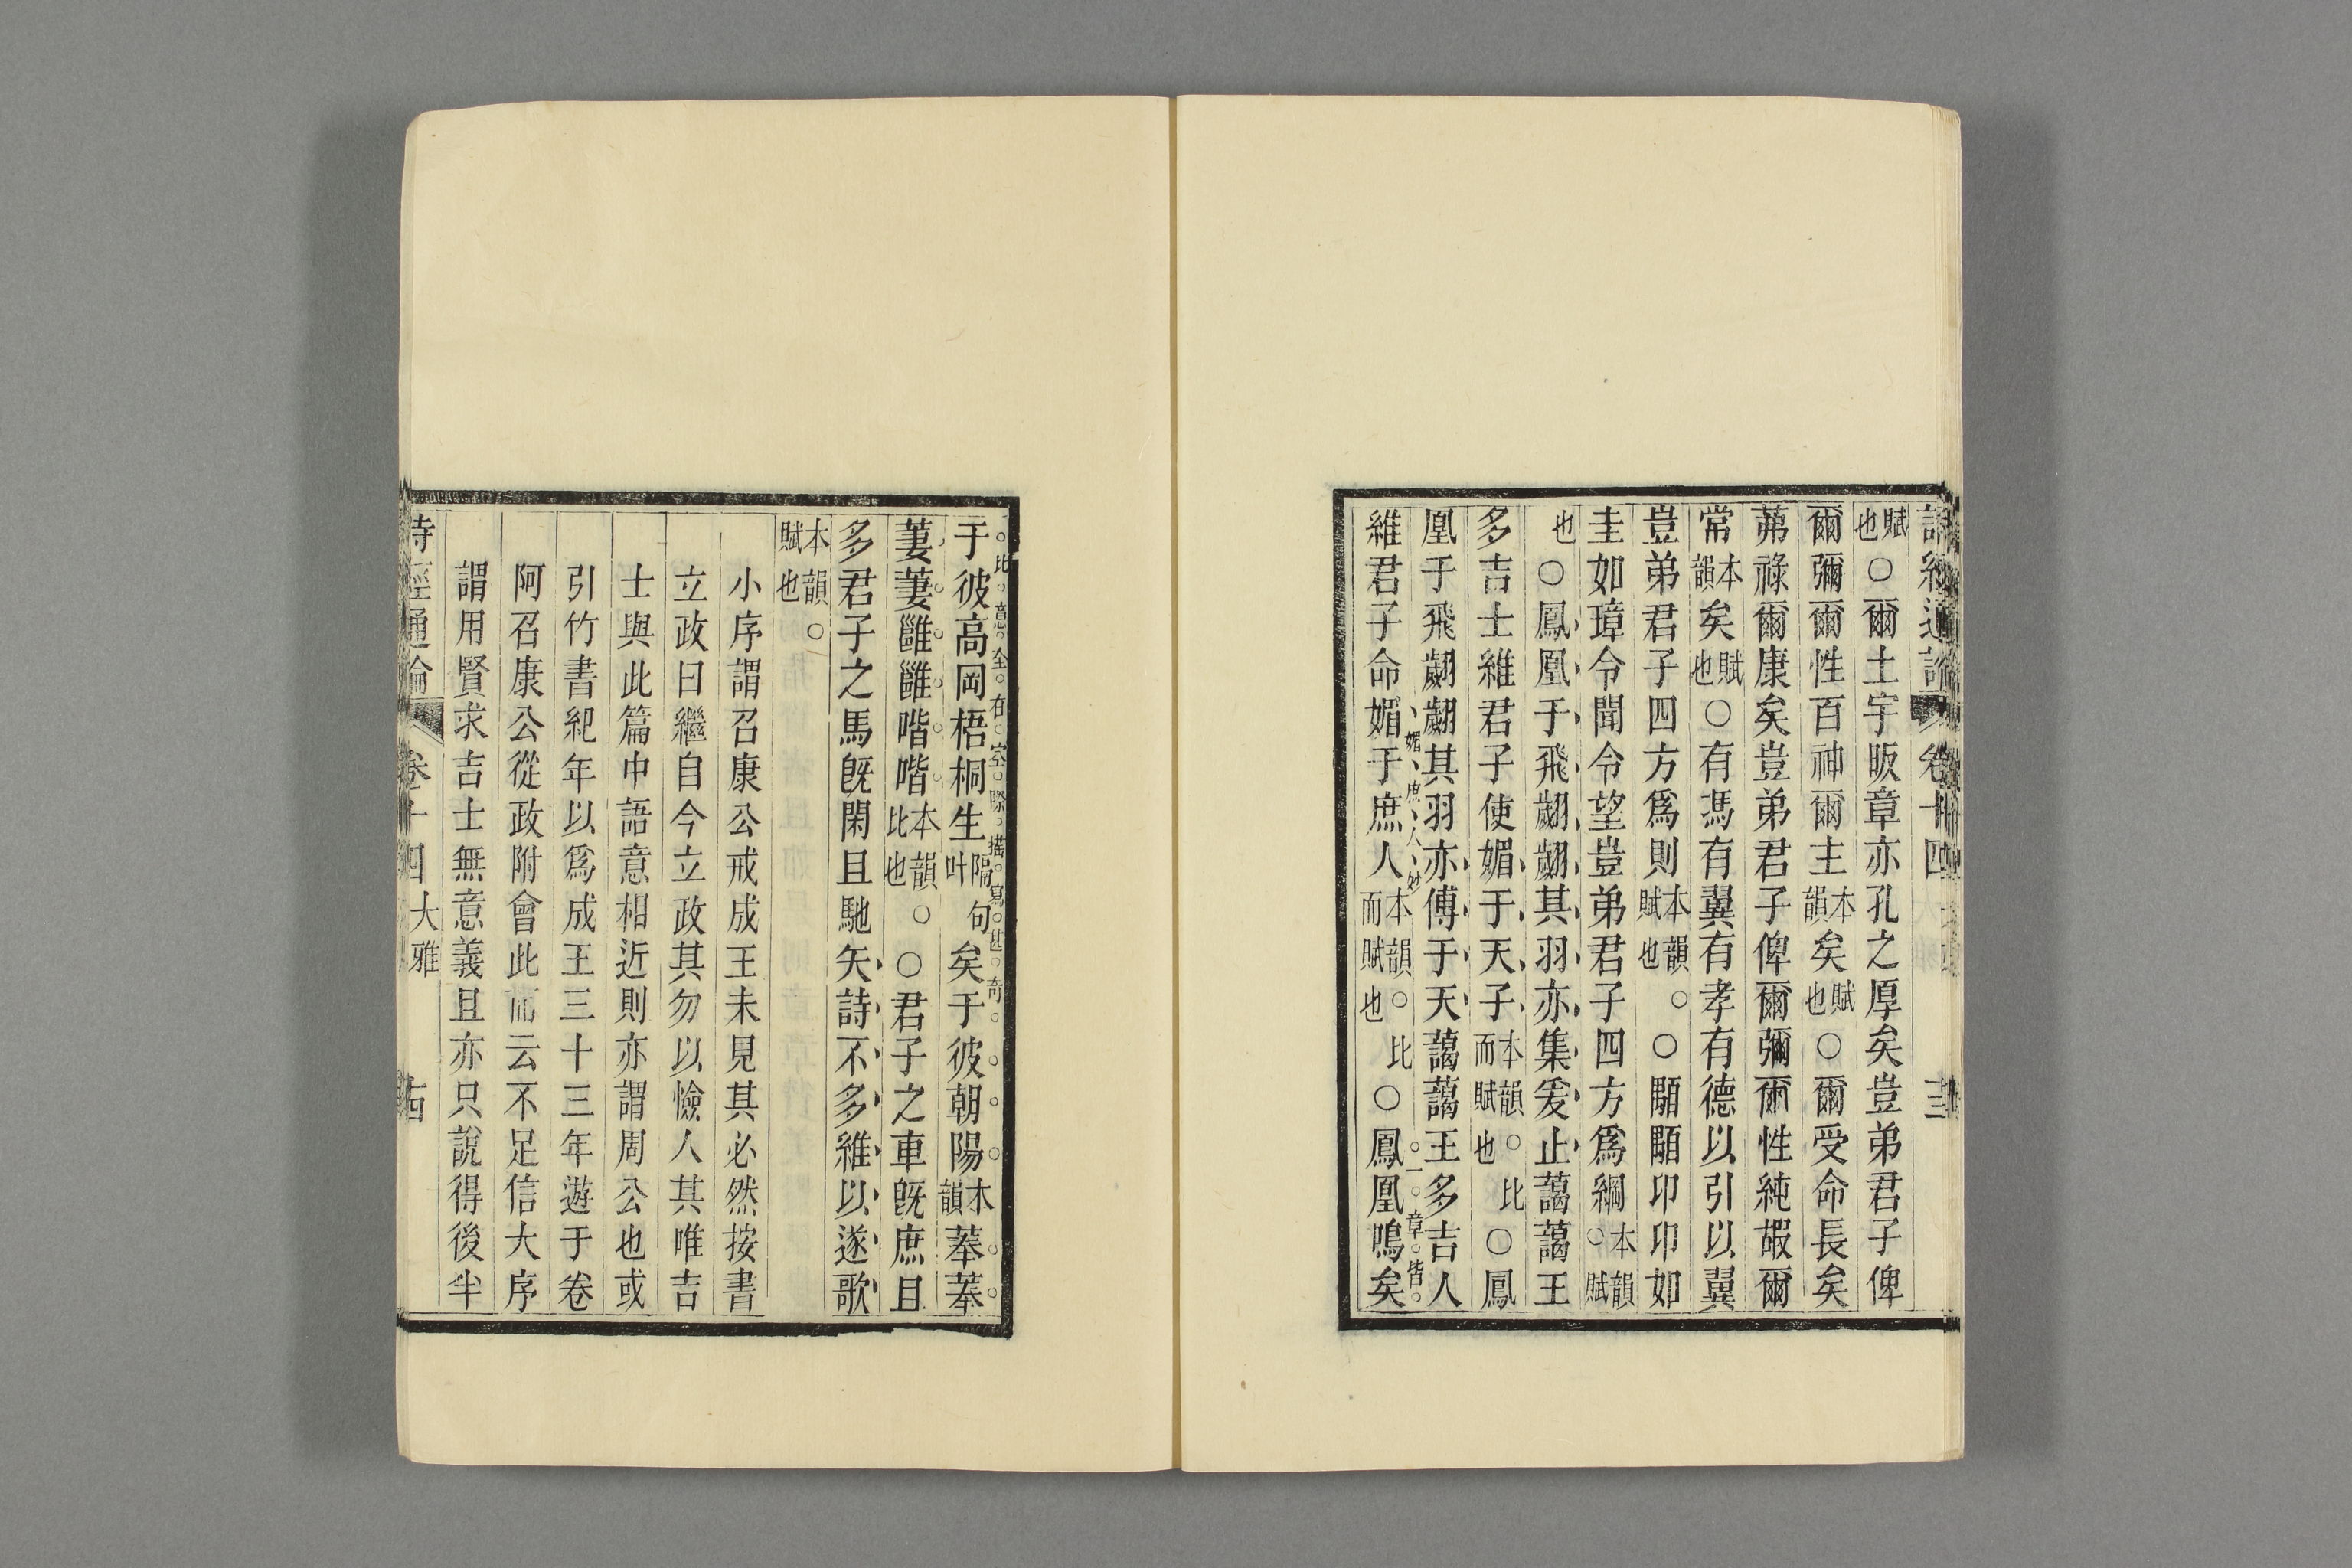 詩經通論 卷十四 大雅 十三
賦也○爾土宇昄章亦孔之厚矣豈弟君子俾
爾彌爾性百神爾主本韻矣賦也○爾受命長矣
茀祿爾康矣豈弟君子俾爾彌爾性純嘏爾
常本韻矣賦也○有馮有翼有孝有德以引以翼
豈弟君子四方爲則本韻。賦也○顒顒卬卬如
圭如璋令聞令望豈弟君子四方爲綱本韻。賦
也○鳳凰于飛翽翽其羽亦集爰止藹藹王
多吉士維君子使媚于天子本韻。比而賦也○鳳
凰于飛翽翽其羽亦傅于天藹藹王多吉人
媚庶人妙 一章皆
維君子命媚于庶人本韻。比而賦也○鳳凰鳴矣
比意全在空際描寫甚奇
于彼高岡梧桐生隔句叶矣于彼朝陽本韻菶菶
萋萋雝雝喈喈本韻。比也○君子之車旣庶且
多君子之馬旣閑且馳矢詩不多維以遂歌
本韻。賦也
小序謂召康公戒成王未見其必然按書
立政曰繼自今立政其勿以憸人其唯吉
士與此篇中語意相近則亦謂周公也或
引竹書紀年以爲成王三十三年遊于卷
阿召康公從政附會此而云不足信大序
謂用賢求吉士無意義且亦只說得後半
詩經通論 卷十四 大雅 十四